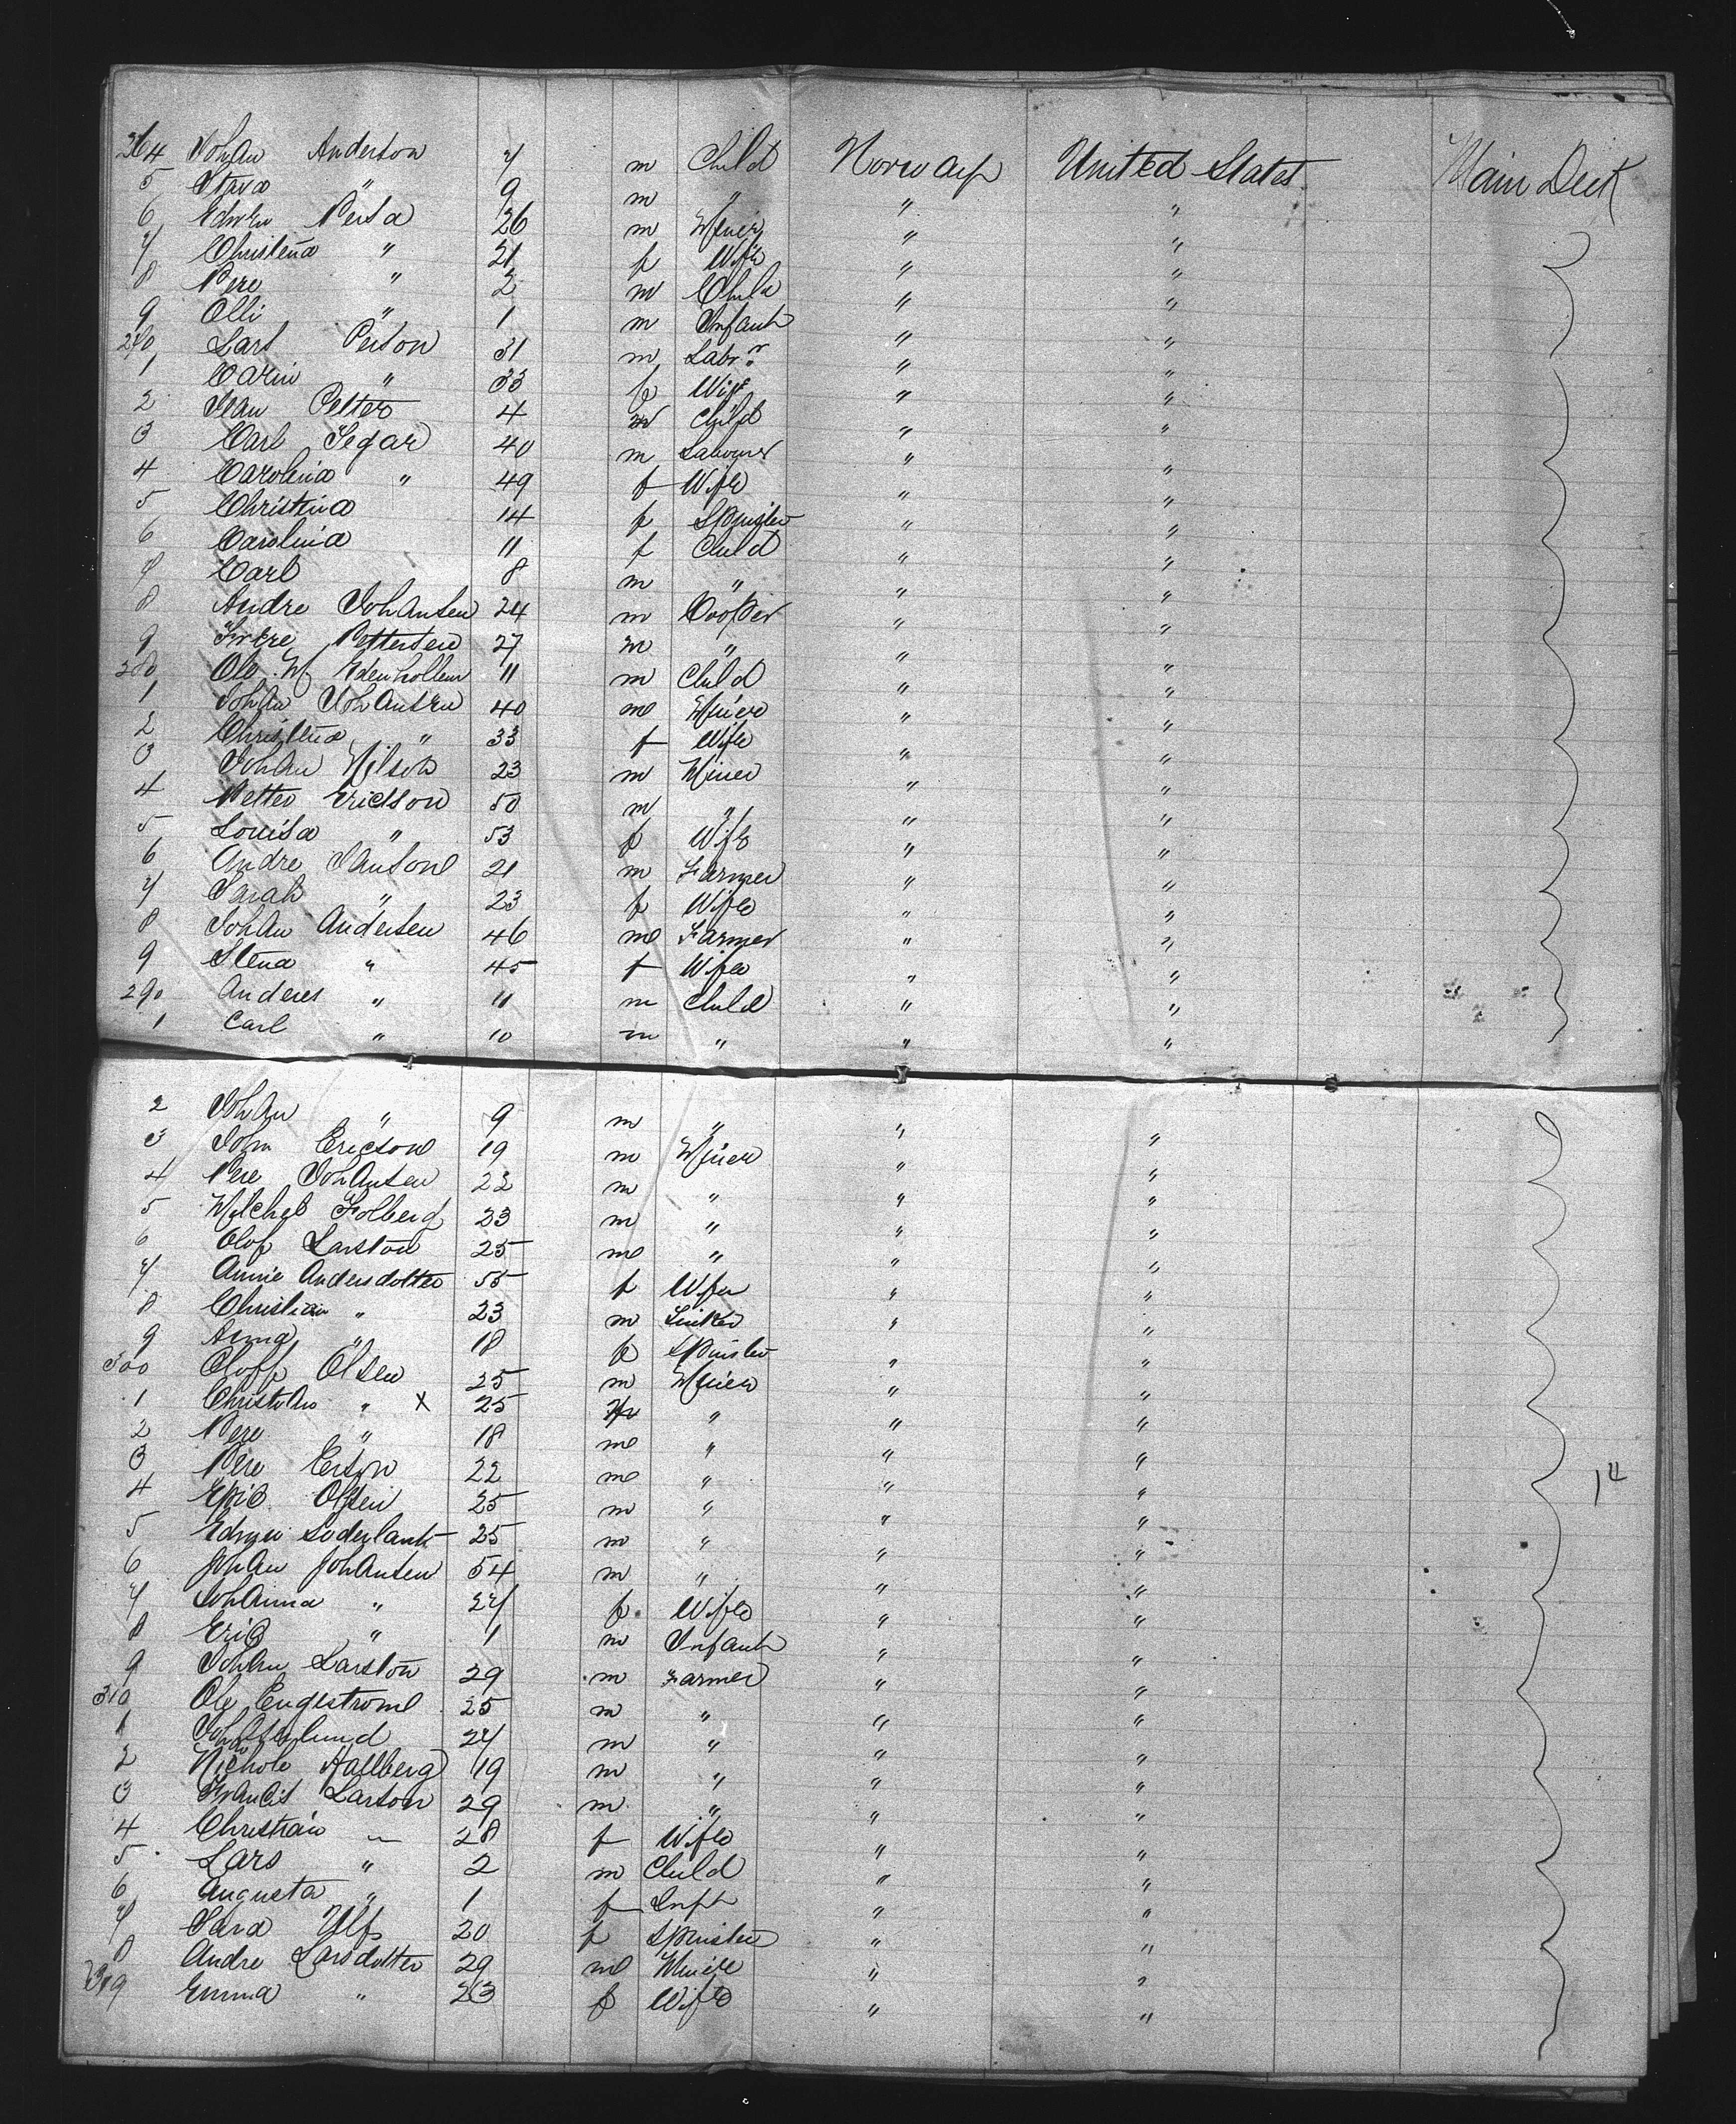 264 Johan Anderson 7 m Child Norway United States Main Deck
5 Stava " 9 m " " "
6 Edwin Persa 26 m Miner " "
7 Christena " 21 f Wife " "
8 Pere " 2 m Child " "
9 Olli " 1 m Infant " "
270 Lars Person 31 m Labr " "
1 Carin " 33 f Wife " "
2 Petter 4 m Child " "
3 Carl Segar 40 m Labourer " "
4 Carolina " 49 f Wife " "
5 Christina 14 f Spinster " "
6 Carolina 11 f Child " "
7 Carl 8 m " " "
8 Andre Johansen 24 m Cooper " "
9 Pettersen 27 m " " "
280 Ole 11 m Child " "
1 Johan Johansen 40 m Miner " "
2 Christena " 33 f Wife " "
3 Johan Nilson 23 m Miner " "
4 Petter Ericsson 50 m " " "
5 Louisa " 53 f Wife " "
6 Andre Jansone 21 m Farmer " "
7 Sarah " 23 f Wife " "
8 Johan Andersen 46 m Farmer " "
9 Stena " 45 f Wife " "
290 Anders " 11 m Child " "
1 Carl " 10 m " " "
2 Johan " 9 m " " "
3 John Ericson 19 m Miner " "
4 Pere Johansen 22 m " " "
5 Michel Folberg 23 m " " "
6 Olof Larston 25 m " " "
7 Annie Andersdotter 55 f Wife " "
8 Christian " 23 m " "
9 Anna " 18 f Spinster " "
300 Oloff Olsen 25 m Miner " "
1 Christian " X 25 m " " "
2 Pere " 18 m " " "
3 Pere Erson 22 m " " "
4 Eric Olsen 25 m " " " 14
5 Edwin Soderlant 25 m " " "
6 Johan Johansen 54 m " " "
7 Johanna " 27 f Wife " "
8 Eric " 1 m Infant " "
9 Johan Larston 29 m Farmer " "
310 Ole Engestrome 25 m " " "
1 Johan Aslund 27 m " " "
2 Nichole Hallberg 19 m " " "
3 Francis Larson 29 m " " "
4 Christian " 28 f Wife " "
5 Lars " 2 m Child " "
6 Augusta " 1 f Inft " "
7 Sara Ylf 20 f Spinster " "
8 Andre Larsdotter 29 m Miner " "
319 Emma " 23 f Wife " "